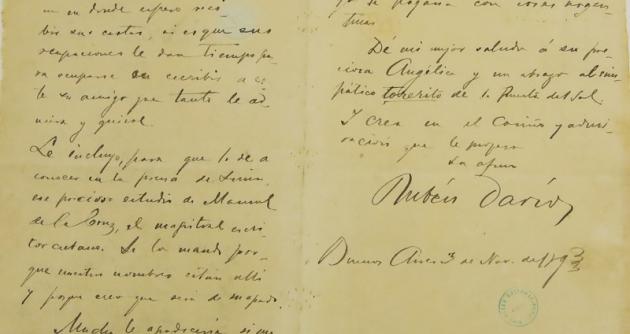 en donde espero reci-
bir sus cartas, si es que sus
ocupaciones le dan tiempo pa-
ra ocuparse en escribir a es-
te su amigo que tanto le ad-
mira y quiere.
Le incluyo, para que lo dé a
conocer en la prensa de Lima,
ese precioso estudio de Manuel
de la Cruz, el magistral escri-
tor cubano. Se lo mando por-
que nuestros nombres están allí
y porque creo que será de su agrado.
Mucho le agradecería si me
se pagana con
Dé mi mejor saludo á su pre-
ciosa Angélica y un abrazo al sim-
pático torerito de la Puerta del Sol.
Y crea en el cariño y admi-
ración que le profesa
su afmo
Rubén Darío
Buenos Aires 3 de Nov. de 1893